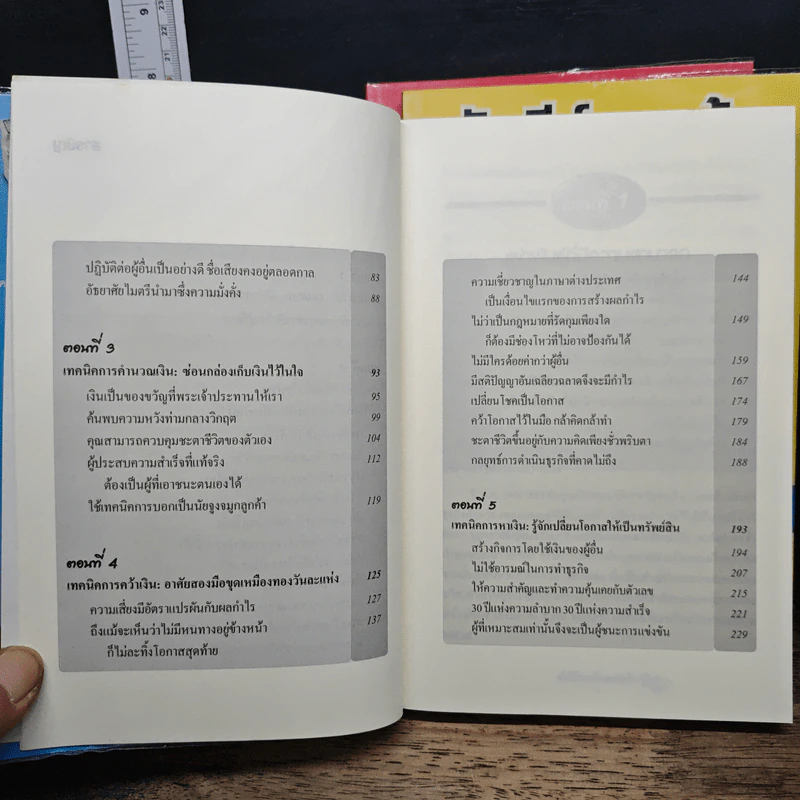 9
8
ปฏิบัติต่อผู้อื่นเป็นอย่างดี ชื่อเสียงคงอยู่ตลอดกาล 83
อัธยาศัยไมตรีนำมาซึ่งความมั่งคั่ง 88
ตอนที่ 3
เทคนิคการคำนวณเงิน: ซ่อนกล่องเก็บเงินไว้ในใจ 93
เงินเป็นของขวัญที่พระเจ้าประทานให้เรา 95
ค้นพบความหวังท่ามกลางวิกฤต 99
คุณสามารถควบคุมชะตาชีวิตของตัวเอง 104
ผู้ประสบความสำเร็จที่แท้จริง 112
ต้องเป็นผู้ที่เอาชนะตนเองได้
ใช้เทคนิคการบอกเป็นนัยจูงจมูกลูกค้า 119
ตอนที่ 4
เทคนิคการคว้าเงิน: อาศัยสองมือขุดเหมืองทองวันละแห่ง 125
ความเสี่ยงมีอัตราแปรผันกับผลกำไร 127
ถึงแม้จะเห็นว่าไม่มีหนทางอยู่ข้างหน้า 137
ก็ไม่ละทิ้งโอกาสสุดท้าย
ความเชี่ยวชาญในภาษาต่างประเทศ 144
เป็นเงื่อนไขแรกของการสร้างผลกำไร
ไม่ว่าเป็นกฎหมายที่รัดกุมเพียงใด 149
ก็ต้องมีช่องโหว่ที่ไม่อาจป้องกันได้
ไม่มีใครด้อยค่ากว่าผู้อื่น 159
มีสติปัญญาอันเฉลียวฉลาดจึงจะมีกำไร 167
เปลี่ยนโชคเป็นโอกาส 174
คว้าโอกาสไว้ในมือ กล้าคิดกล้าทำ 179
ชะตาชีวิตขึ้นอยู่กับความคิดเพียงชั่วพริบตา 184
กลยุทธ์การดำเนินธุรกิจที่คาดไม่ถึง 188
ตอนที่ 5
เทคนิคการหาเงิน: รู้จักเปลี่ยนโอกาสให้เป็นทรัพย์สิน 193
สร้างกิจการโดยใช้เงินของผู้อื่น 194
ไม่ใช้อารมณ์ในการทำธุรกิจ 207
ให้ความสำคัญและทำความคุ้นเคยกับตัวเลข 215
30 ปีแห่งความลำบาก 30 ปีแห่งความสำเร็จ 221
ผู้ที่เหมาะสมเท่านั้นจึงจะเป็นผู้ชนะการแข่งขัน 229